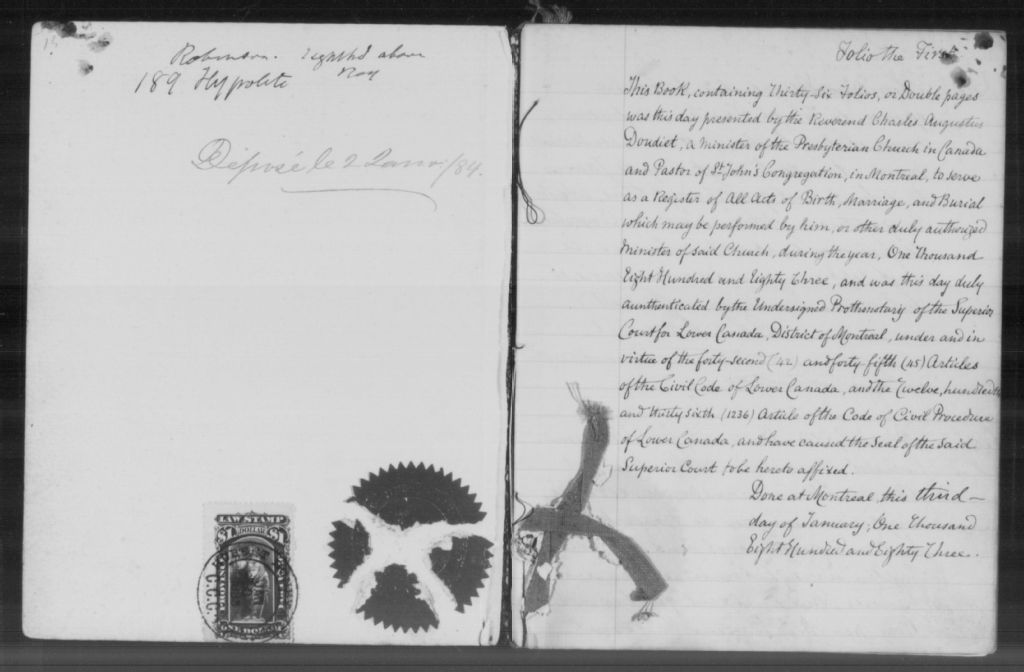 Robinson. Eighth'd above
189 Hypolite Roy
Déposé le 2 Janv/84.
LAW STAMP
$1 DOLLAR $1
Folio the First
This Book, containing Thirty-Six Folios, or Double pages
was this day presented by the Reverend Charles Augustus
Doudiet, a Minister of the Presbyterian Church in Canada
and Pastor of St. John's Congregation, in Montreal, to serve
as a Register of All Acts of Birth, Marriage, and Burial
which may be performed by him, or other duly authorized
Minister of said Church, during the year, One Thousand
Eight Hundred and Eighty Three, and was this day duly
aunthenticated by the Undersigned Prothonotary of the Superior
Court for Lower Canada, District of Montreal, under and in
virtue of the forty-second (42) and forty-fifth (45) Articles
of the Civil Code of Lower Canada, and the Twelve, hundredth
and thirty sixth (1236) Article of the Code of Civil Procedure
of Lower Canada, and have caused the Seal of the said
Superior Court to be hereto affixed.
Done at Montreal, this third—
day of January, One Thousand
Eight Hundred and Eighty Three.